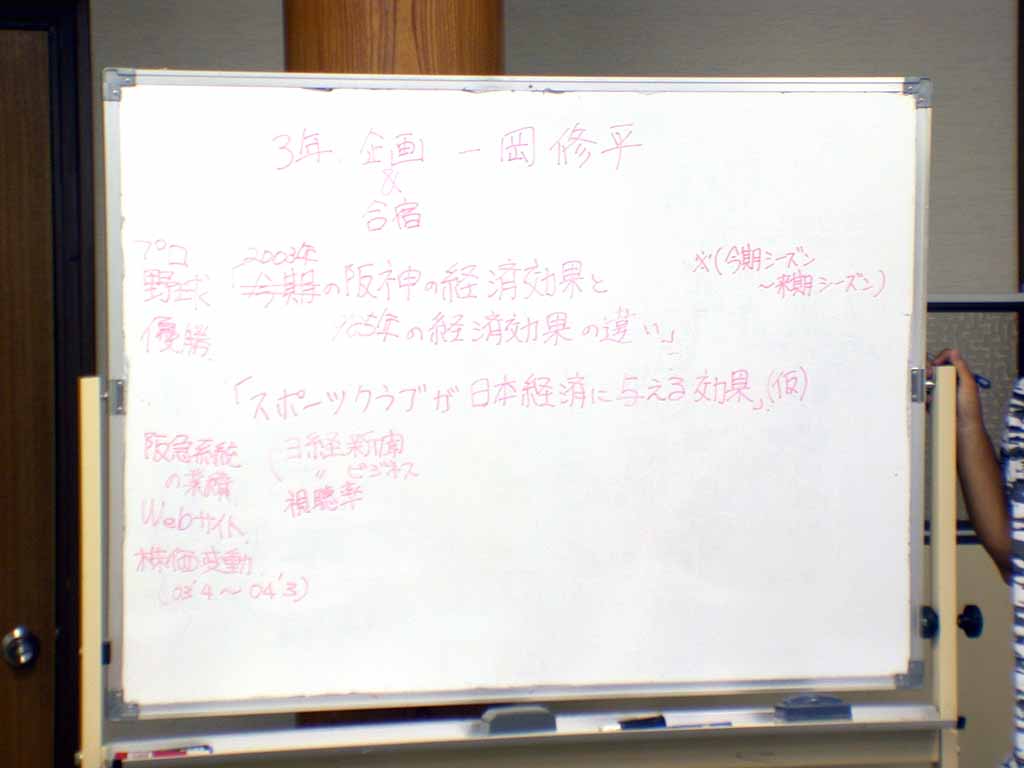 3年 企画 一岡 修平
&
合宿
プロ
野球
優勝
2003年
「今期の阪神の経済効果と
'85年の経済効果の違い」
※(今期シーズン
～来期シーズン)
「スポーツクラブが日本経済に与える効果」(仮)
阪急系統
の業績
Webサイト
株価変動
(03'4～04'3)
日経新聞
〃 ビジネス
視聴率